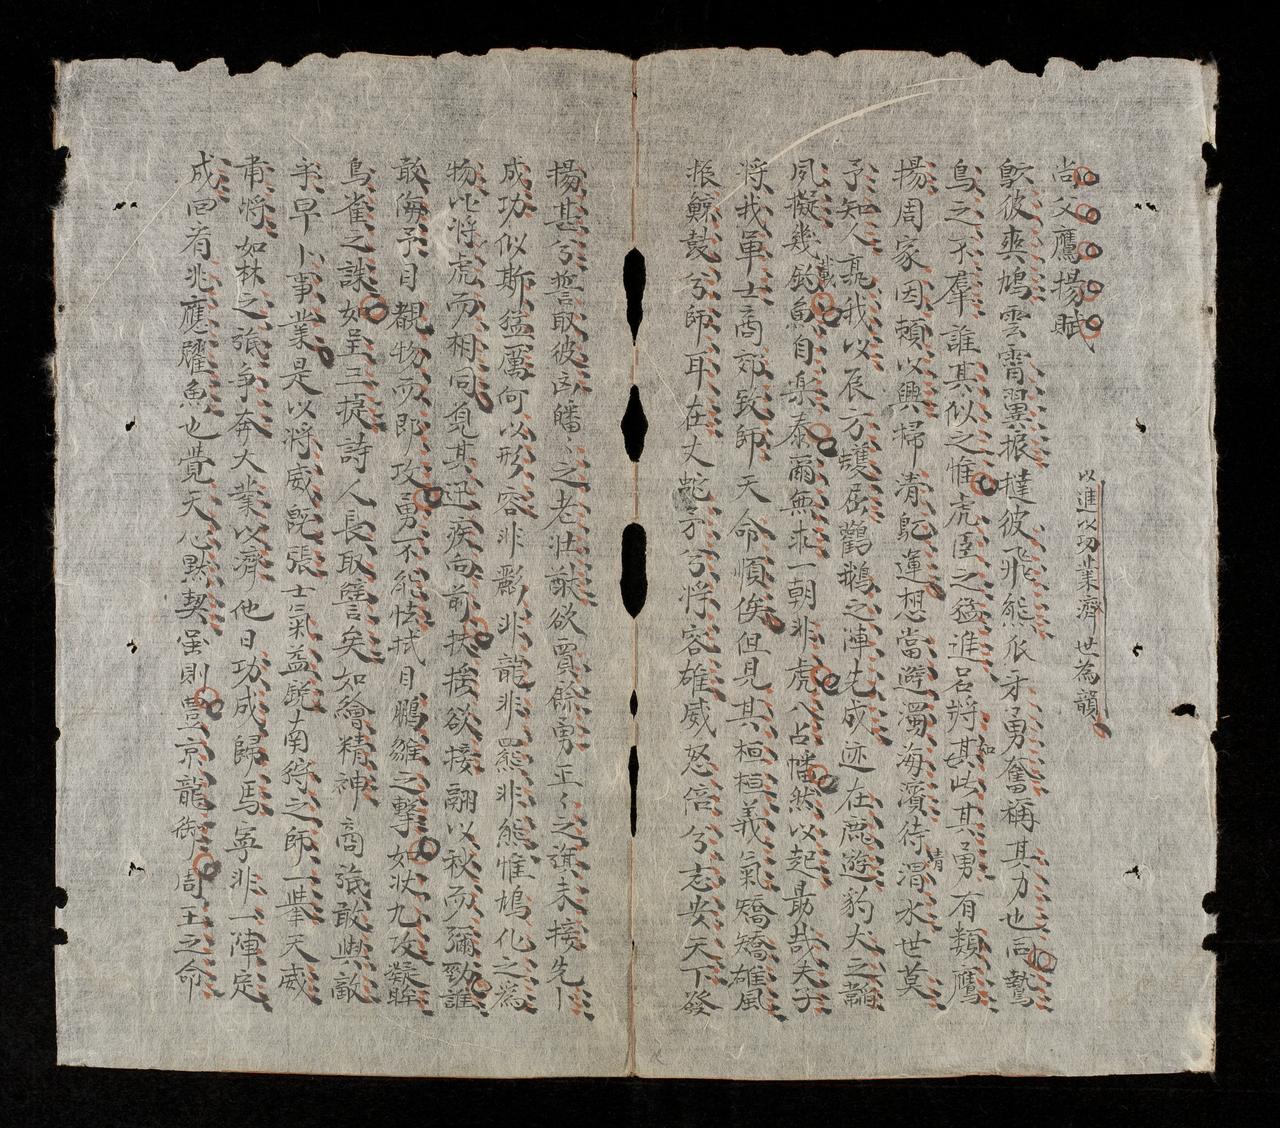 尚父鷹揚賦
以進以功業濟世為韻
鴥彼爽鳩雲霄翼振撻彼飛熊爪牙勇奮稱其力也同鷙
鳥之不羣誰其似之惟虎臣之猛進呂將其如此其勇有類鷹
揚周家因賴以興掃清鼂運想當避濁海濱待清渭水世莫
予知人羨我以辰方蠖居鸛鵝之陣先成迹在鹿遊豹犬之韜
夙擬幾釣魚自樂泰爾無求一朝非虎入占幡然以起最哉夫子
將我軍士商郊致師天命順俟但見其桓桓義氣矯矯雄風
振鯨鼓兮師耳在丈蛇方兮將容雄威怒倍兮志安天下發
揚甚兮誓取彼凶皤々之老壯猷欲賈餘勇正々之旗未接先卜
成功似斯猛厲何以形容非彲非龍非羆非熊惟鳩化之為
物比將虎而相同覓其迅疾向前扶搖欲接翮以秋而彌勁誰
敢侮予目覩物而即攻勇不能怯拭目鵬雛之擊如狀九攻凝眸
鳥雀之誅如呈三捷詩人長取譬矣如繪精神商旅敢與敵
乎早卜事業是以將威既張士氣益銳南狩之師一挙天威
甫將如林之旅爭奔大業以濟他日功成歸馬寧非一陣定
成回有兆應躍魚也覺天心默契虽則豊京龍御周王之命